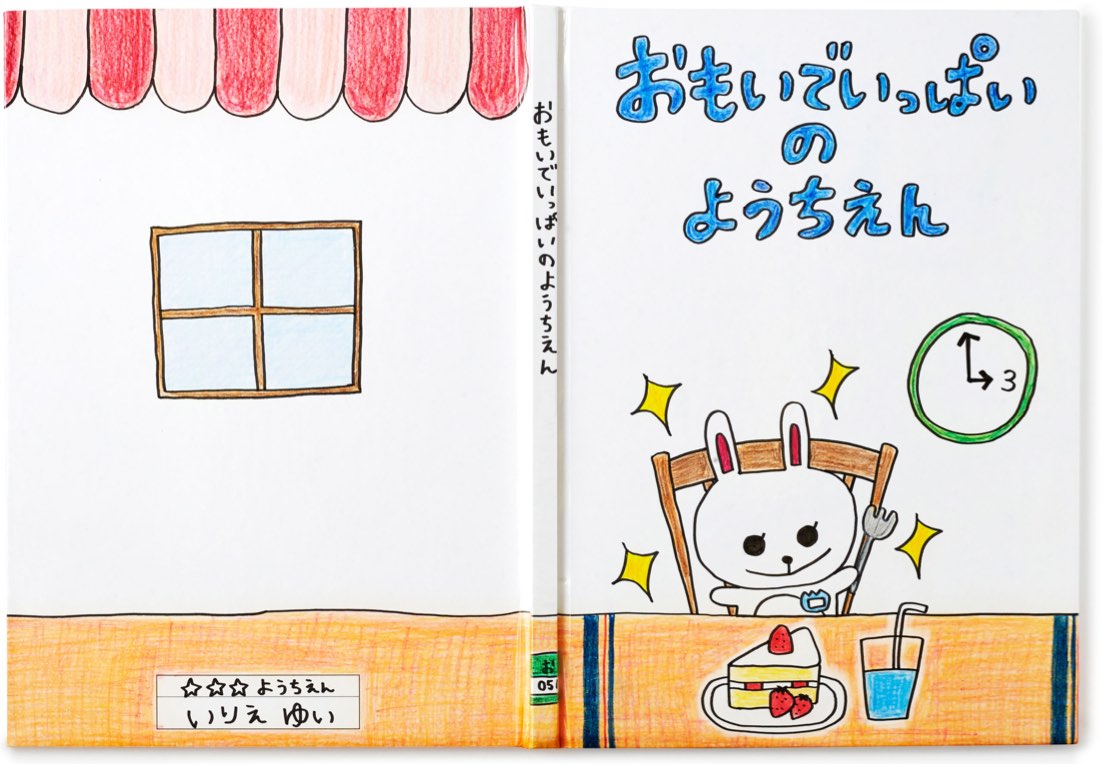 おもいでいっぱい
の
ようちえん
3
おもいでいっぱいのようちえん
お
☆☆☆ようちえん
いりえ ゆい